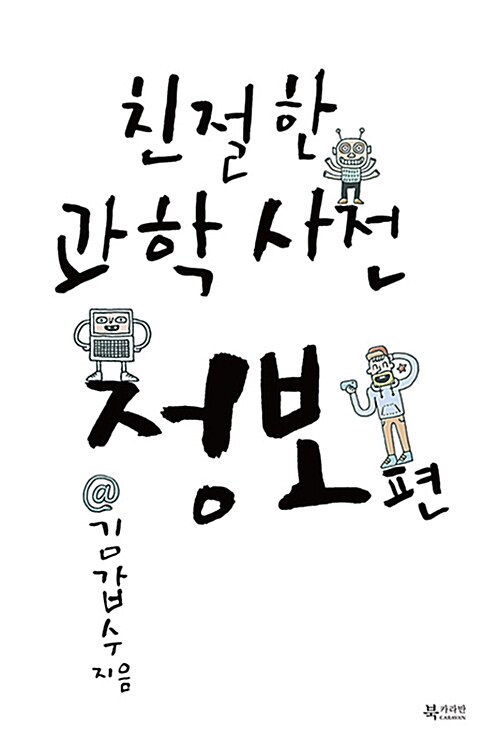 친절한
과학 사전
정보편
@
김갑수
지음
북카라반
CARAVAN